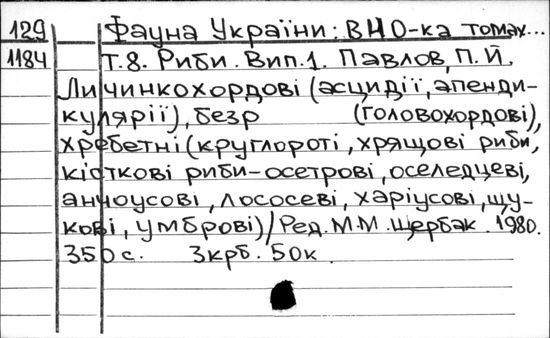 129 Фауна України: В 40-ка томах...
1184 Т.8. Риби. Вип.1. Павлов, П.Й.
Личинкохордові (асцидії, апенди-
кулярії), безр (головохордові),
хребетні (круглороті, хрящові риби,
кісткові риби-осетрові, оселедцеві,
анчоусові, лососеві, харіусові, щу-
кові, умброві)/Ред. М.М. Щербак. 1980.
350 с. 3крб. 50к.